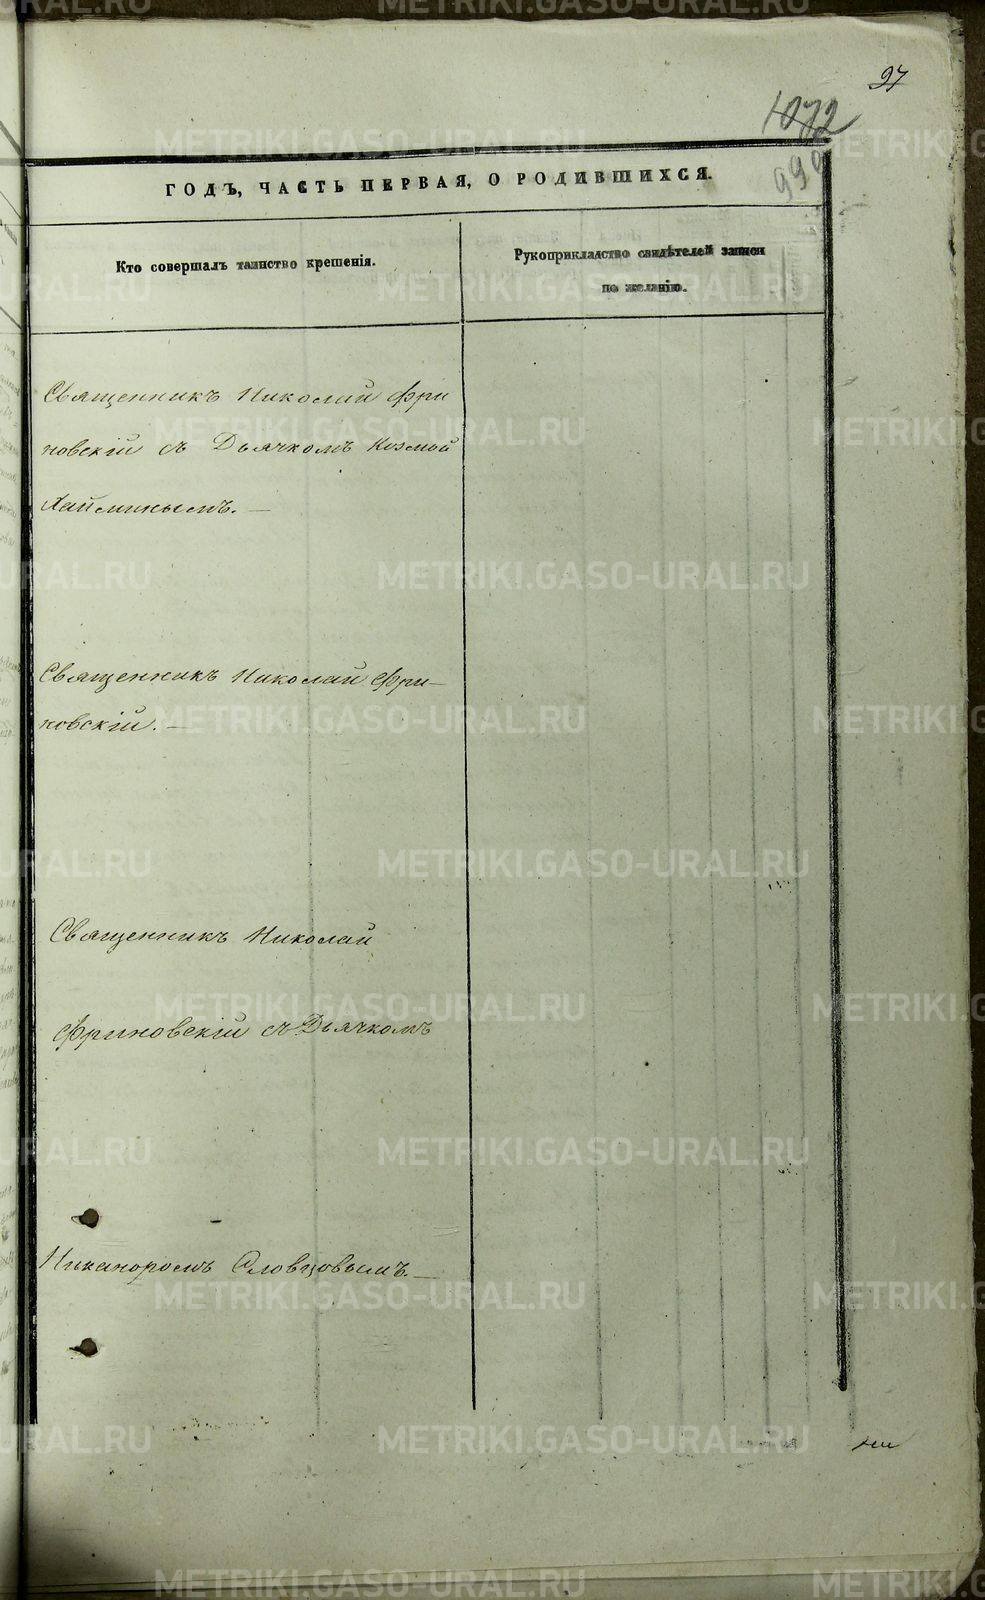 97
1072
990
ГОДЪ, ЧАСТЬ ПЕРВАЯ, О РОДИВШИХСЯ.
Кто совершалъ таинство крещенія.
Рукоприкладство свидѣтелей записи
по желанію.
Священникъ Николай Фри
новскій съ Дьячкомъ Козмой
Хаймикымъ. —
Священникъ Николай Фри—
новскій. —
Священникъ Николай
Фриновскій съ Дьячкомъ
Никаноромъ Словцовымъ. —
METRIKI.GASO-URAL.RU